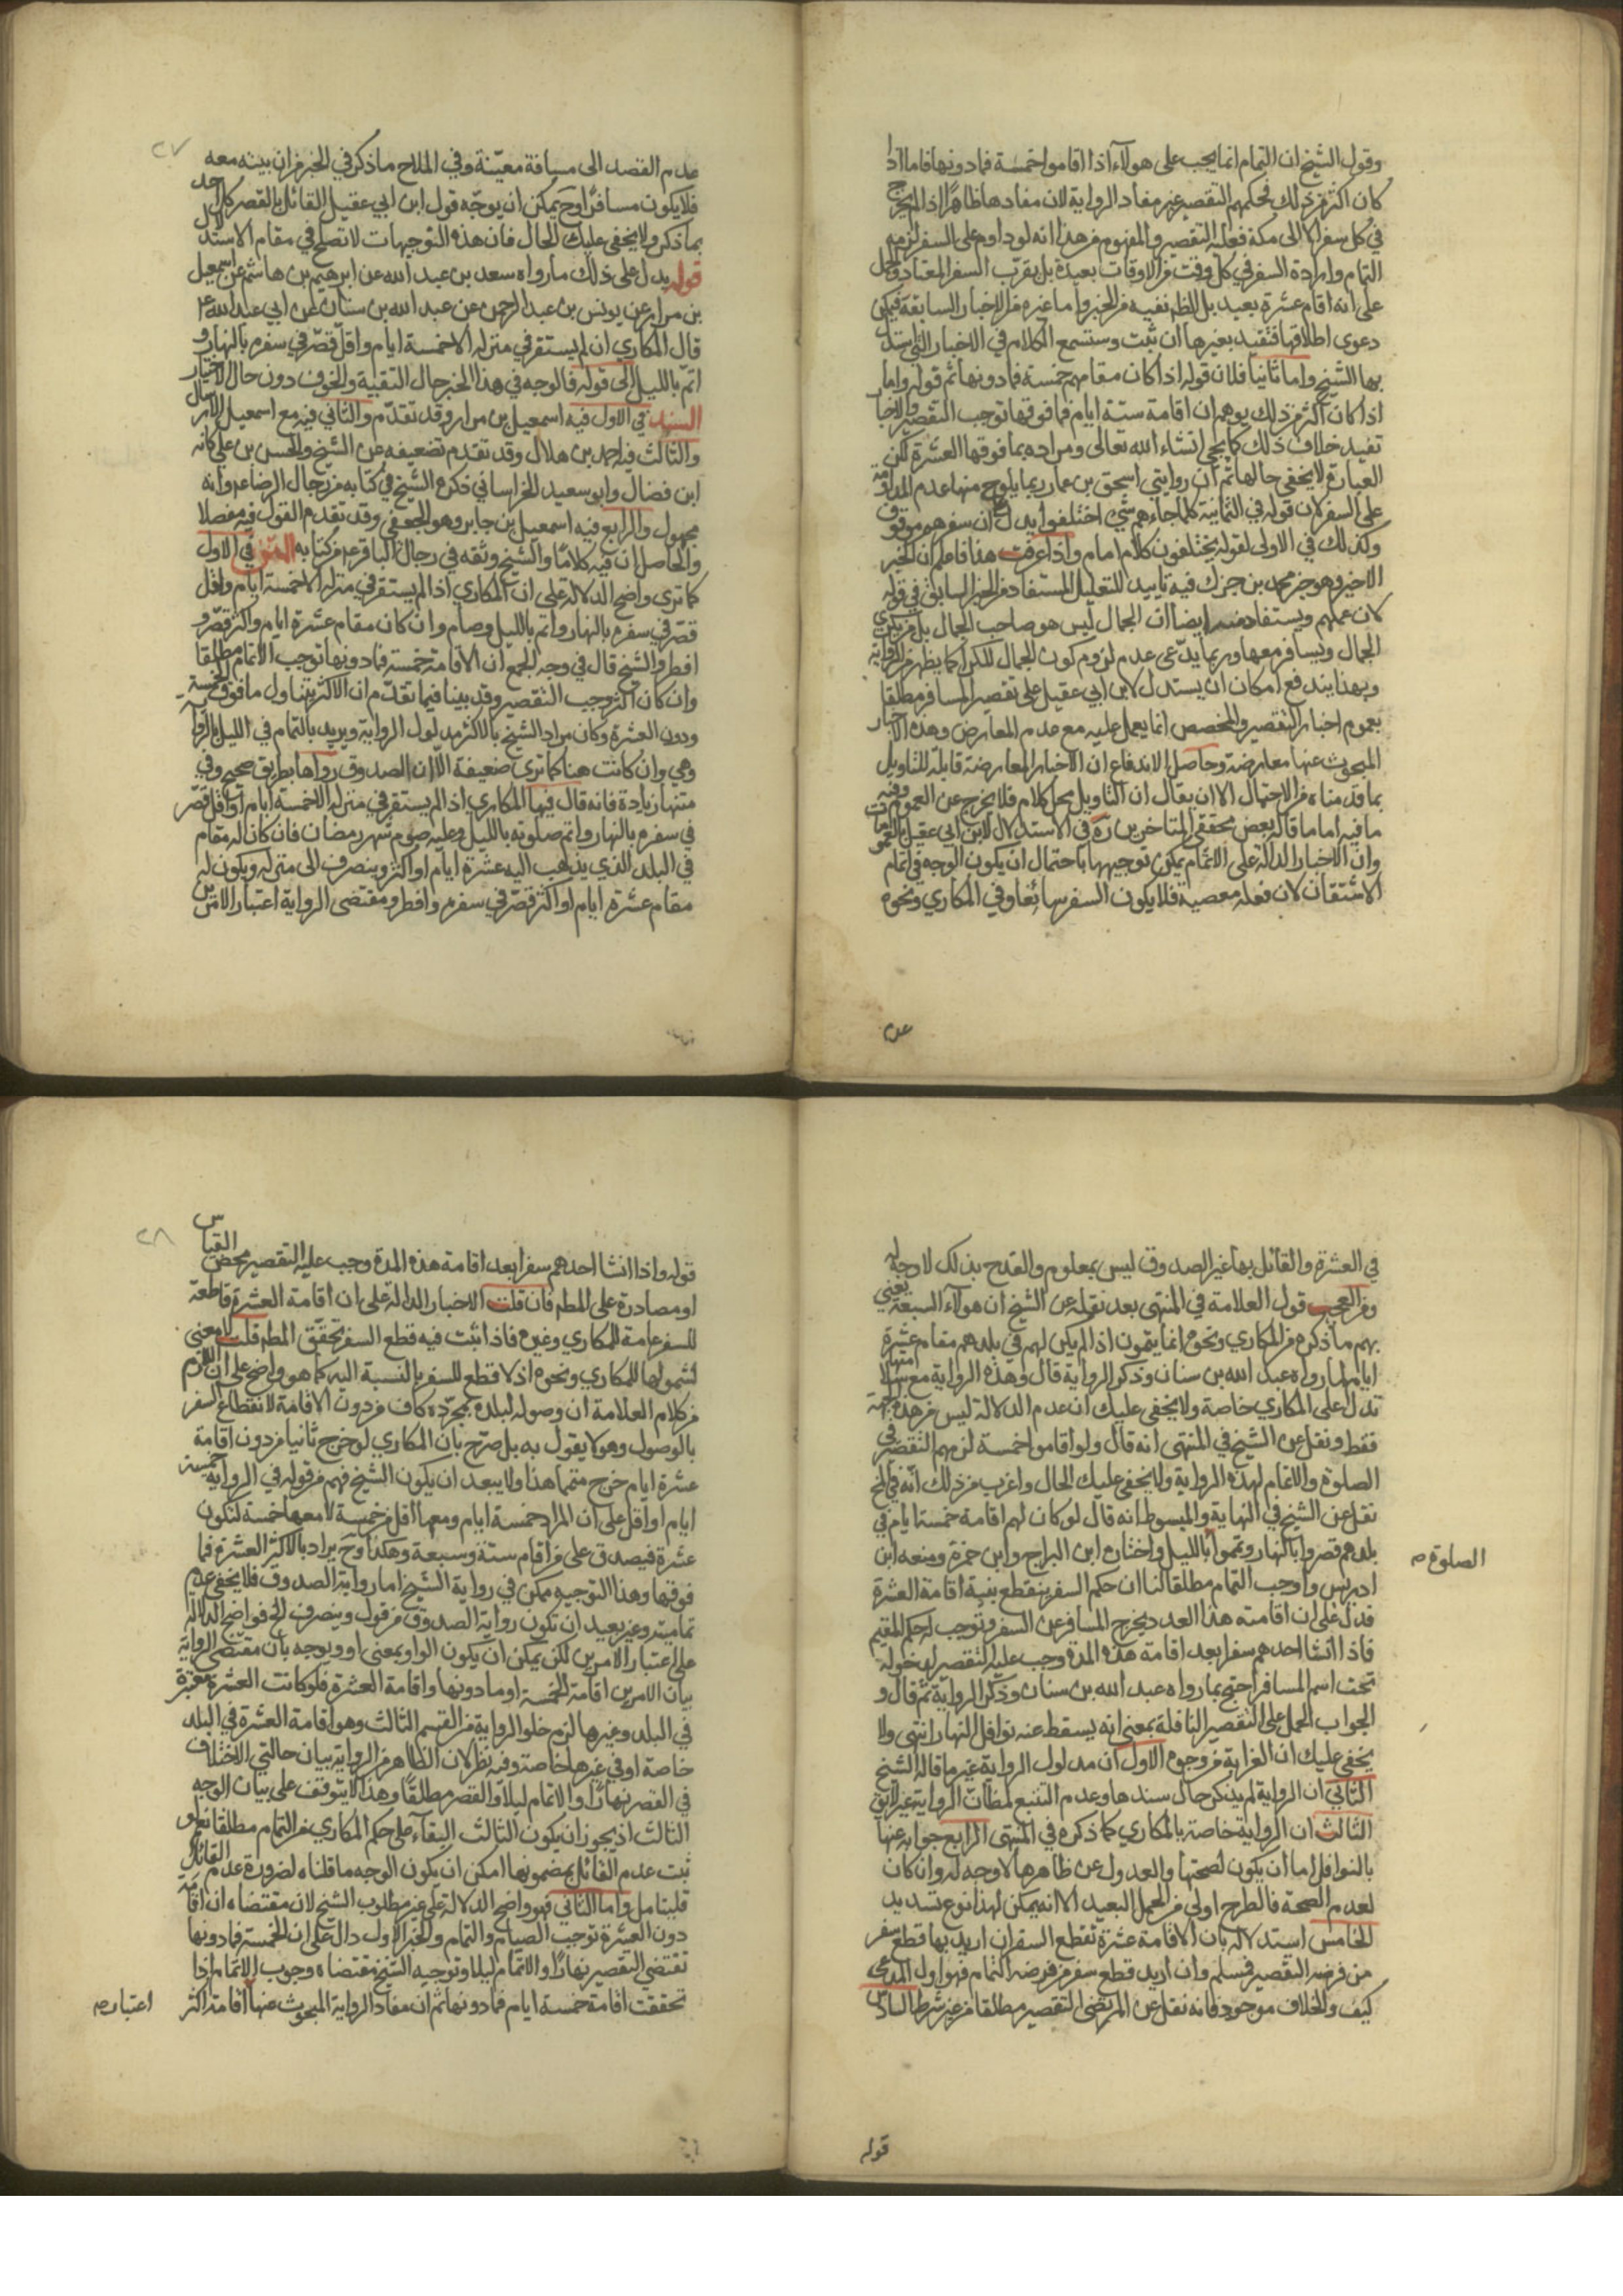 وقول الشيخ ان التمام انما يجب على هولاء اذا اقاموا خمسة فما دونها فاما اذا
كان اكثر من ذلك فحكمهم التقصير غير مفاد الرواية لان مفادها ظاهرا اذا لم يخرج
في كل سفر الا الى مكة فعليه التقصير والمفهوم من هذا انه لو داوم على السفر لزمه
التمام وارادة السفر في كل وقت من الاوقات بعيدة بل يقرب السفر المعتاد والحمل
على انه اقام عشرة بعيد بل الظم نفيه من الخبر واما غيره من الاخبار السابقة فيمكن
دعوى اطلاقها فتقيد بغيرها ان ثبت وستسمع الكلام في الاخبار التي ستدل
بها الشيخ واما ثانيا فلان قوله اذا كان مقامهم خمسة فما دونها ثم قوله واما
اذا كان اكثر من ذلك يوهم ان اقامة ستة ايام فما فوقها توجب التقصير والاخبار
تفيد خلاف ذلك كما يجي انشاء الله تعالى ومراده بما فوقها العشرة لكن
العبارة لا يخفى حالها ثم ان روايتي اسحق بن عمار ربما يلوح منها عدم المداومة
على السفر لان قوله في الثانية كلما جاءهم شي اختلفوا يدل على ان سفرهم موقوف
وكذلك في الاولى لقوله يختلفون كل الايام واذا عرفت هذا فاعلم ان الخبر
الاخير وهو خبر محمد بن جزك فيه تاييد للتعليل المستفاد من الخبر السابق في قوله
لان عملهم ويستفاد منه ايضا ان الجمال ليس هو صاحب الجمال بل من يكري
الجمال ويسافر معها وربما يدعى عدم لزوم كون الجمال للكرا كما يظهر من الرواية
وبهذا يندفع امكان ان يستدل لابن ابي عقيل على تقصير المسافر مطلقا
بعموم اخبار التقصير والمخصص انما يعمل عليه مع عدم المعارض وهذه الاخبار
المبحوث عنها معارضة وحاصل الاندفاع ان الاخبار المعارضة قابلة للتاويل
بما قدمناه من الاحتمال الا ان يقال ان التاويل محل كلام فلا يخرج عن العموم وفيه
ما فيه اما ما قاله بعض محققي المتاخرين ره في الاستدلال لابن ابي عقيل بالعمومات
وان الاخبار الدالة على الاتمام يمكن توجيهها باحتمال ان يكون الوجه في اتمام
الاشتقان لان فعله معصية فلا يكون السفر سائغا وفي المكاري ونحوه
عدم
٢٧
عدم القصد الى مسافة معينة وفي الملاح ما ذكر في الخبر من ان بيته معه
فلا يكون مسافرا وح يمكن ان يوجه قول ابن ابي عقيل القائل بالقصر كل احد
بما ذكر ولا يخفى عليك الحال فان هذه التوجيهات لا تصلح في مقام الاستدلال
قوله يدل على ذلك ما رواه سعد بن عبد الله عن ابرهيم بن هاشم عن اسمعيل
بن مرار عن يونس بن عبد الرحمن عن عبد الله بن سنان عن ابي عبد الله ع
قال المكاري ان لم يستقر في منزله الا خمسة ايام واقل قصر في سفره بالنهار و
اتم بالليل الى قوله فالوجه في هذا الخبر حال التقية والخوف دون حال الاختيار
السند في الاول فيه اسمعيل بن مرار وقد تقدم والثاني فيه مع اسمعيل الارسال
والثالث فيه احمد بن هلال وقد تقدم تضعيفه عن الشيخ والحسن بن علي كانه
ابن فضال وابو سعيد الخراساني ذكره الشيخ في كتابه من رجال الرضا ع وانه
مجهول والرابع فيه اسمعيل بن جابر وهو الجعفي وقد تقدم القول فيه مفصلا
والحاصل ان فيه كلاما والشيخ وثقه في رجال الباقر ع من كتابه المتن في الاول
كما ترى واضح الدلالة على ان المكاري اذا لم يستقر في منزله الا خمسة ايام واقل
قصر في سفره بالنهار واتم بالليل وصام وان كان مقام عشرة ايام واكثر قصر و
افطر والشيخ قال في وجه الجمع ان الاقامة خمسة فما دونها توجب الاتمام مطلقا
وان كان اكثر وجب التقصير وقد بينا فيما تقدم ان الاكثر يتناول ما فوق الخمسة
ودون العشرة وكان مراد الشيخ بالاكثر مدلول الرواية ويريد بالتمام في الليل بالرواية
وهي وان كانت هنا كما ترى ضعيفة الا ان الصدوق رواها بطريق صحيح وفي
متنها زيادة فانه قال فيها المكاري اذا لم يستقر في منزله الا خمسة ايام او اقل قصر
في سفره بالنهار واتم صلوته بالليل وعليه صوم شهر رمضان فان كان له مقام
في البلد الذي يذهب اليه عشرة ايام او اكثر وينصرف الى منزله ويكون له
مقام عشرة ايام او اكثر قصر في سفره وافطر ومقتضى الرواية اعتبار الامرين
في العشرة والقائل بها غير الصدوق ليس بمعلوم والقدح بذلك لا وجه له
ومن العجب قول العلامة في المنتهى بعد نقله عن الشيخ ان هولاء السبعة يعني
بهم ما ذكره من المكاري ونحوه انما يتمون اذا لم يكن لهم في بلدهم مقام عشرة
ايام لما رواه عبد الله بن سنان وذكر الرواية قال وهذه الرواية مع سندها
تدل على المكاري خاصة ولا يخفى عليك ان عدم الدلالة ليس من هذه الجهة
فقط ونقل عن الشيخ في المنتهى انه قال ولو اقاموا خمسة لزمهم التقصير في
الصلوة والاتمام لهذه الرواية ولا يخفى عليك الحال واغرب من ذلك انه في المخ
نقل عن الشيخ في النهاية والمبسوط انه قال لو كان لهم اقامة خمسة ايام في
بلدهم قصروا بالنهار وتمموا بالليل واختاره ابن البراج وابن حمزة ومنعه ابن
الصلوة صح
ادريس واوجب التمام مطلقا لنا ان حكم السفر ينقطع بنية اقامة العشرة
فدل على ان اقامته هذا العدد يخرج المسافر عن السفر وتوجب له حكم المقيم
فاذا انشا احدهم سفرا بعد اقامة هذه المدة وجب عليه التقصير لدخوله
تحت اسم المسافر احتج بما رواه عبد الله بن سنان وذكر الرواية ثم قال و
الجواب الحمل على التقصير النافلة بمعنى انه يسقط عنه نوافل النهار انتهى ولا
يخفى عليك ان الغرابة من وجوه الاول ان مدلول الرواية غير ما قاله الشيخ
الثاني ان الرواية لم يذكر حال سندها وعدم التتبع لمظان الرواية غير لائق
الثالث ان الرواية خاصة بالمكاري كما ذكره في المنتهى الرابع جوابه عنها
بالنوافل اما ان يكون لصحتها والعدول عن ظاهرها لا وجه له وان كان
لعدم الصحة فالطرح اولى من الحمل البعيد الا انه يمكن لهذا نوع تسديد
الخامس استدلاله بان الاقامة عشرة تقطع السفر ان اريد بها قطع سفر
من فرضه التقصير فمسلم وان اريد قطع سفر من فرضه التمام فهو اول المدعى
كيف والخلاف موجود فانه نقل عن المرتضى التقصير مطلقا من غير شرط السادس
قوله
٢٨
قوله واذا انشا احدهم سفرا بعد اقامة هذه المدة وجب عليه التقصير محض القياس
او مصادرة على المطم فان قلت الاخبار الدالة على ان اقامة العشرة قاطعة
للسفر عامة للمكاري وغيره فاذا ثبت فيه قطع السفر تحقق المطم قلت لا معنى
لشمولها للمكاري ونحوه اذ لا قطع للسفر بالنسبة اليه كما هو واضح على ان اللازم
من كلام العلامة ان وصوله لبلده بمجرده كاف من دون الاقامة لانقطاع السفر
بالوصول وهو لا يقول به بل صرح بان المكاري لو خرج ثانيا من دون اقامة
عشرة ايام خرج متمما هذا ولا يبعد ان يكون الشيخ فهم من قوله في الرواية خمسة
ايام او اقل على ان المراد خمسة ايام ومعها اقل من خمسة لا معها خمسة لتكون
عشرة فيصدق على من اقام ستة وسبعة وهكذا وح يراد بالاكثر العشرة فما
فوقها وهذا التوجيه ممكن في رواية الشيخ اما رواية الصدوق فلا يخفى عدم
تماميته وغير بعيد ان تكون رواية الصدوق من قوله وينصرف الخ فواضح الدلالة
على اعتبار الامرين لكن يمكن ان يكون الواو بمعنى او ويوجه بان مقتضى الرواية
بيان الامرين اقامة الخمسة او ما دونها واقامة العشرة فلو كانت العشرة معتبرة
في البلد وغيرها لزم خلو الرواية من القسم الثالث وهو اقامة العشرة في البلد
خاصة او في غيرها خاصة وفيه نظر لان الظاهر من الرواية بيان حالتي الاختلاف
في القصر نهارا والاتمام ليلا والقصر مطلقا وهذا لا يتوقف على بيان الوجه
الثالث اذ يجوز ان يكون الثالث البقاء على حكم المكاري من التمام مطلقا نعم لو
ثبت عدم القائل بمضمونها امكن ان يكون الوجه ما قلناه لضرورة عدم القائل
فليتامل واما الثاني فهو واضح الدلالة على غير مطلوب الشيخ لان مقتضاه ان اقامة
دون العشرة توجب الصيام والتمام والخبر الاول دال على ان الخمسة فما دونها
تقتضي التقصير نهارا والاتمام ليلا وتوجيه الشيخ مقتضاه وجوب الاتمام اذا
تحققت اقامة خمسة ايام فما دونها ثم ان مفاد الرواية المبحوث عنها اقامة اكثر
اعتبار صح